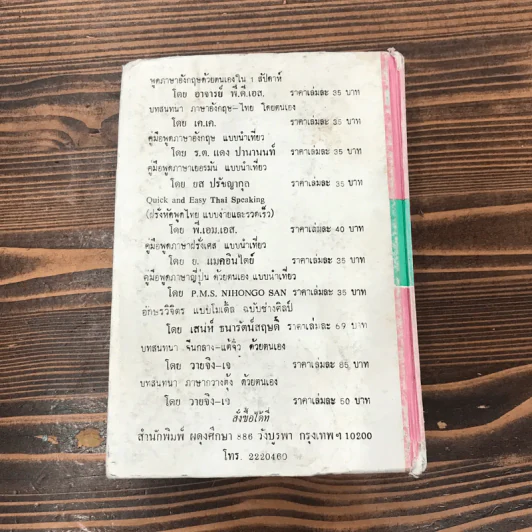 พูดภาษาอังกฤษด้วยตนเองใน 1 สัปดาห์
โดย อาจารย์ พี.ดี.เอส. ราคาเล่มละ 35 บาท
บทสนทนา ภาษาอังกฤษ–ไทย โดยตนเอง
โดย เค.เค. ราคาเล่มละ 35 บาท
คู่มือพูดภาษาอังกฤษ แบบนำเที่ยว
โดย ร.ต. แดง ปานานนท์ ราคาเล่มละ 35 บาท
คู่มือพูดภาษาเยอรมัน แบบนำเที่ยว
โดย ยส ปรัชญากุล ราคาเล่มละ 35 บาท
Quick and Easy Thai Speaking
(ฝรั่งหัดพูดไทย แบบง่ายและรวดเร็ว)
โดย พี.เอม.เอส. ราคาเล่มละ 40 บาท
คู่มือพูดภาษาฝรั่งเศส แบบนำเที่ยว
โดย ย. แมคอินไตย์ ราคาเล่มละ 35 บาท
คู่มือพูดภาษาญี่ปุ่น ด้วยตนเอง แบบนำเที่ยว
โดย P.M.S. NIHONGO SAN ราคาเล่มละ 35 บาท
อักษรวิจิตร แบบโมเด็ล ฉบับช่างศิลป์
โดย เสน่ห์ ธนารัตน์สฤษดิ์ ราคาเล่มละ 69 บาท
บทสนทนา จีนกลาง–แต้จิ๋ว ด้วยตนเอง
โดย วายจิง–เจ ราคาเล่มละ 65 บาท
บทสนทนา ภาษากวางตุ้ง ด้วยตนเอง
โดย วายจิง–เจ ราคาเล่มละ 50 บาท
สั่งซื้อได้ที่
สำนักพิมพ์ ผดุงศึกษา 886 วังบูรพา กรุงเทพฯ 10200
โทร. 2220460